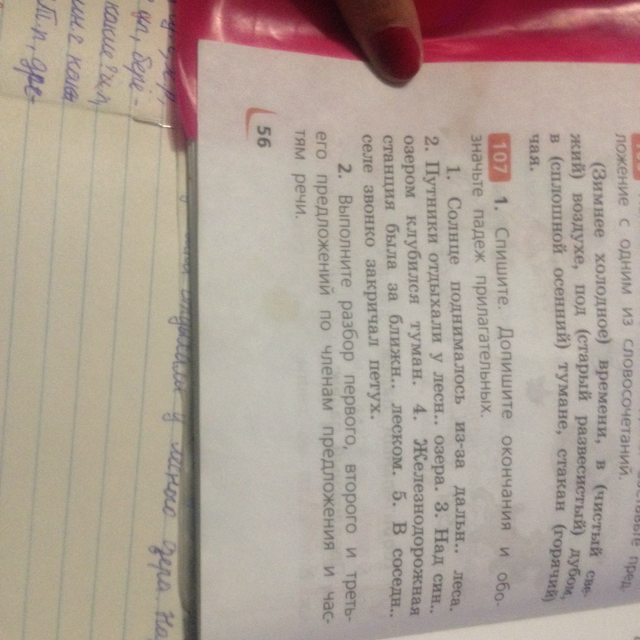 ложение с одним из словосочетаний.
(Зимнее холодное) времени, в (чистый све-
жий) воздухе, под (старый развесистый) дубом,
в (сплошной осенний) тумане, стакан (горячий)
чая.
107 1. Спишите. Допишите окончания и обо-
значьте падеж прилагательных.
1. Солнце поднималось из-за дальн.. леса.
2. Путники отдыхали у лесн.. озера. 3. Над син..
озером клубился туман. 4. Железнодорожная
станция была за ближн.. леском. 5. В соседн..
селе звонко закричал петух.
2. Выполните разбор первого, второго и треть-
его предложений по членам предложения и час-
тям речи.
56